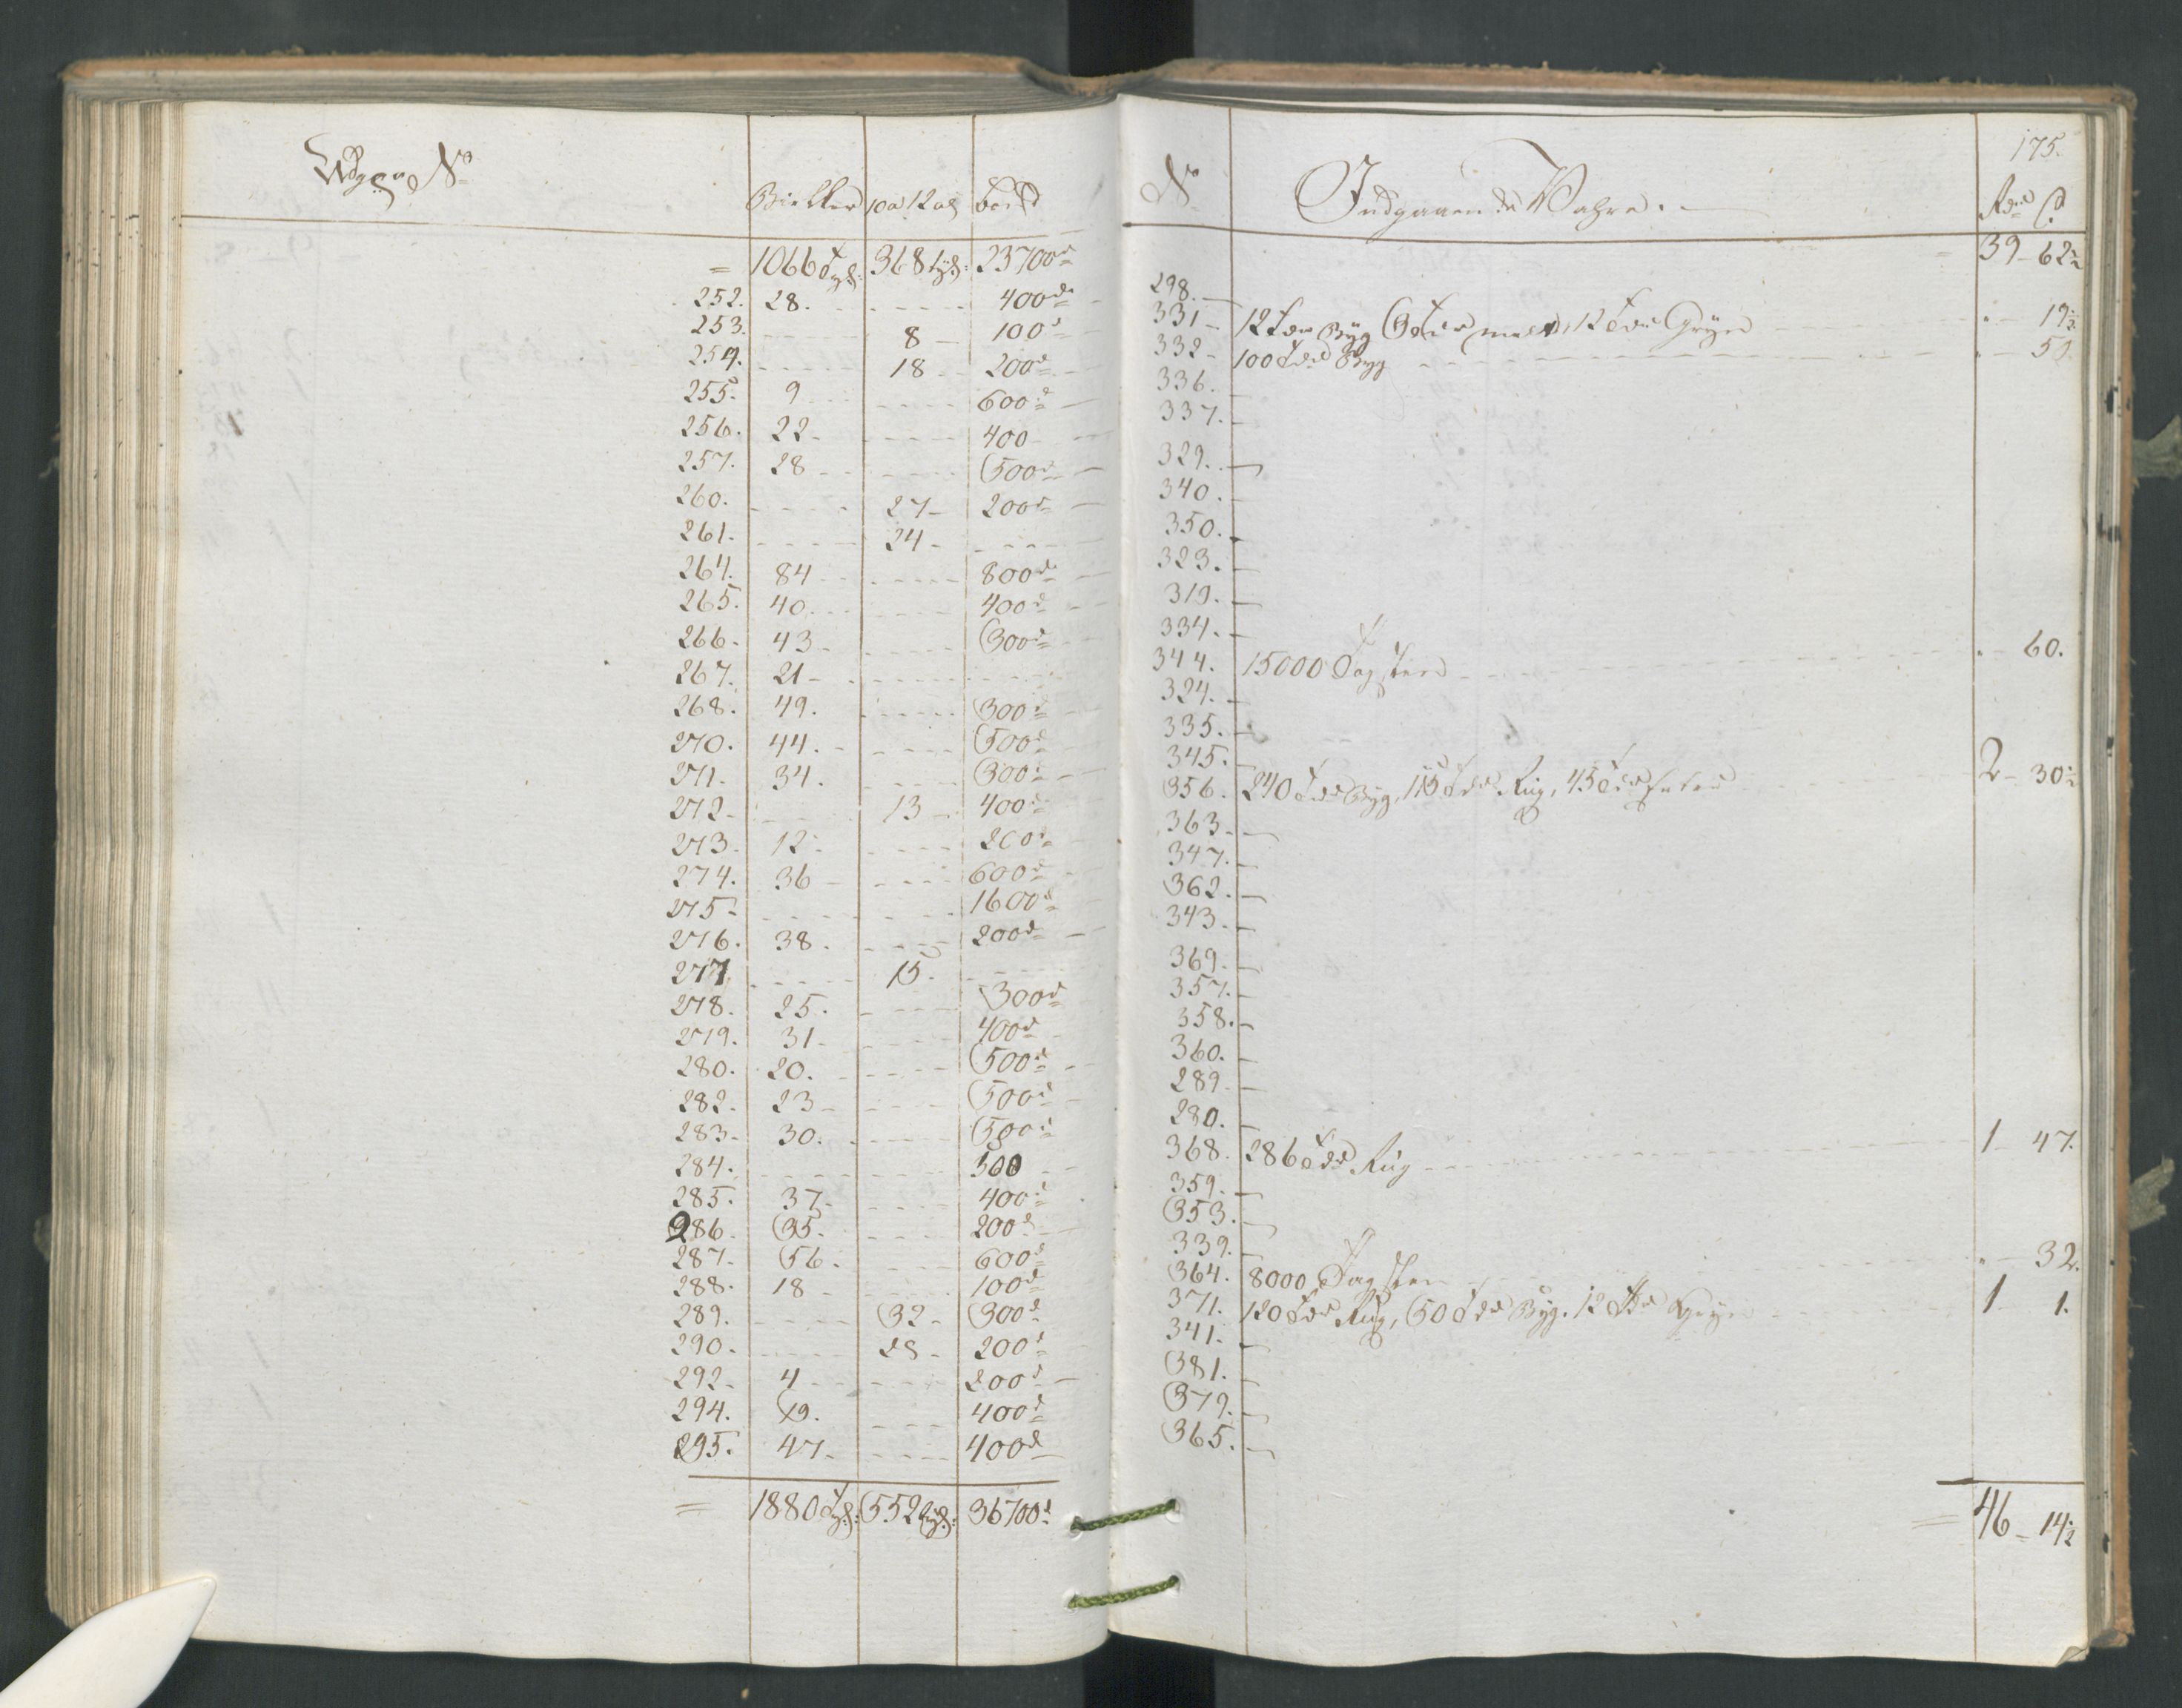 Udgaaende No
Bielker 10 a 12 al bord
= 1066 Tyl: 368 tyl: 23700 d
252. 28. 400 d
253. 8 100 d
254. 18 200 d
255. 9 600 d
256. 22 400
257. 28 500 d
260. 27 200 d
261. 24
264. 84 800 d
265. 40 400 d
266. 43 300 d
267. 21
268. 49. 300 d
270. 44. 500 d
271. 34. 300 d
272. 13 400 d
273. 12 200 d
274. 36 600 d
275. 1600 d
276. 38. 200 d
277. 15.
278. 25. 300 d
279. 31 400 d
280. 20. 500 d
282. 23 500 d
283. 30. 500 d
284. 500
285. 37 400 d
286. 35. 200 d
287. 56. 600 d
288. 18 100 d
289. 32 300 d
290. 28 200 d
292. 4 200 d
294. 19. 400 d
295. 47. 400 d
= 1880 Tyl: 552 tyl: 36700 d
175.
No Indgaaende Vahre. Rdr s
39 - 62½
298.
331 12 Tdr Byg 6 Tdr malt, 12 Tdr Gryn 19½
332 100 Tdr Byg 50.
336.
337.
329.
340.
350.
323.
319.
334.
344. 15000 Tagsten 60.
324.
335.
345.
356. 240 Tdr Byg, 115 Tdr Rug, 45 Tdr 2 - 30½
363.
347.
362.
343.
369.
357.
358.
360.
289.
280.
368. 286 Tdr Rug 1 - 47.
359.
353.
339.
364. 8000 Tagsten 32.
371. 120 Tdr Rug, 50 Tdr Byg. 12 Tdr Gryn 1 1.
341.
381.
379.
365.
= 46 - 14½